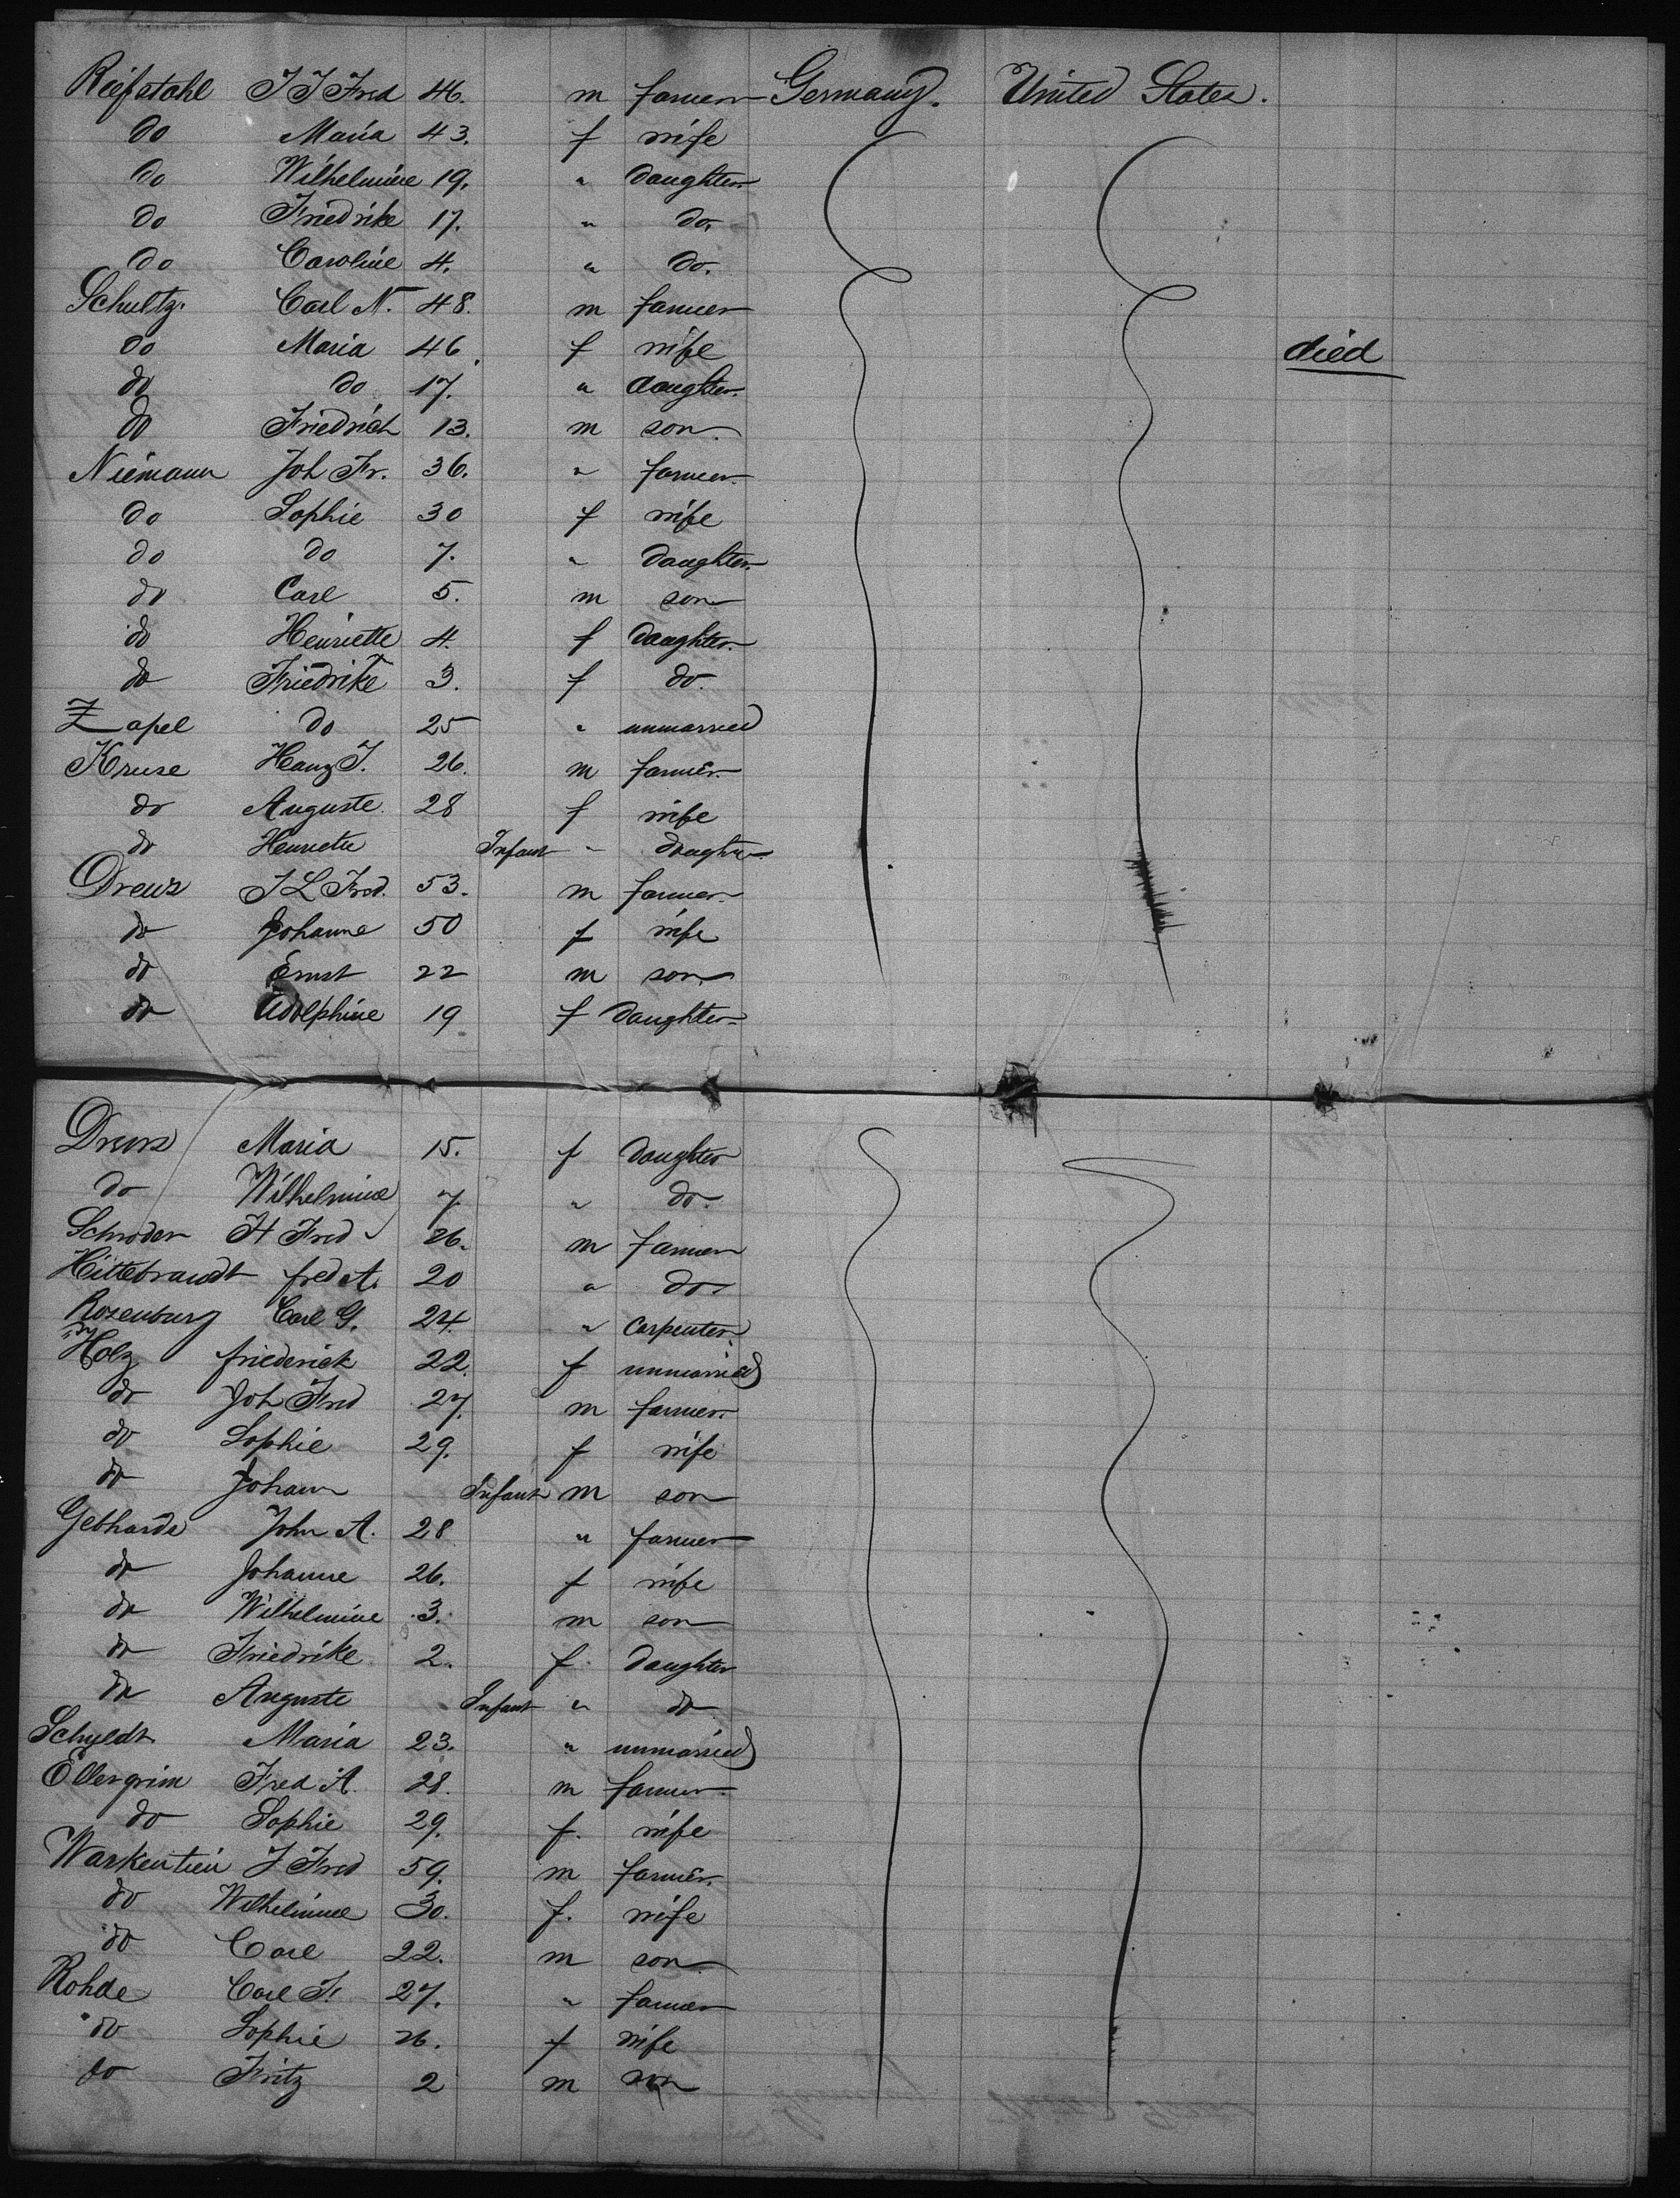 Riefstahl J J Fred 46. m farmer Germany. United States.
do Maria 43. f wife
do Wilhelmine 19. " daughter
do Friedrike 17. " do.
do Caroline 4. " do.
Schultz. Carl N. 48. m farmer
do Maria 46. f wife died
do do 17. " daughter.
do Friedrich 13. m son.
Niemann Joh Fr. 36. " farmer.
do Sophie 30 f wife
do do 7. " daughter.
do Carl 5. m son
do Henriette 4. f daughter.
do Friedrike 3. f do.
Zapel do 25 " unmarried
Kruse Hans J. 26. m farmer.
do Auguste. 28 f wife
do Henriette Infant " daughter
Drews J L Fred. 53. m farmer.
do Johanne 50 f wife
do Ernst 22 m son.
do Adolphine 19 f daughter
Drews Maria 15. f daughter
do Wilhelmine 7 " do.
Schroder H Fred 26. m farmer
Hittebrandt fred A. 20 " do
Rosenburg Carl G. 24. " carpenter.
Holz friederick 22. f unmarried
do Joh Fred 27. m farmer.
do Sophie 29. f wife
do Johann Infant m son
Gebhards John A. 28 " farmer
do Johanne 26. f wife
do Wilhelmine 3. m son
do Friedrike 2. f daughter
do Auguste Infant " do
Schyldt Maria 23. " unmarried
Ellergrim Fred A. 28. m farmer.
do Sophie 29. f. wife
Warkentien J Fred 59. m farmer.
do Wilhelmine 30. f. wife
do Carl 22. m son
Rohde Carl F. 27. " farmer
do Sophie 26. f wife
do Fritz 2 m son